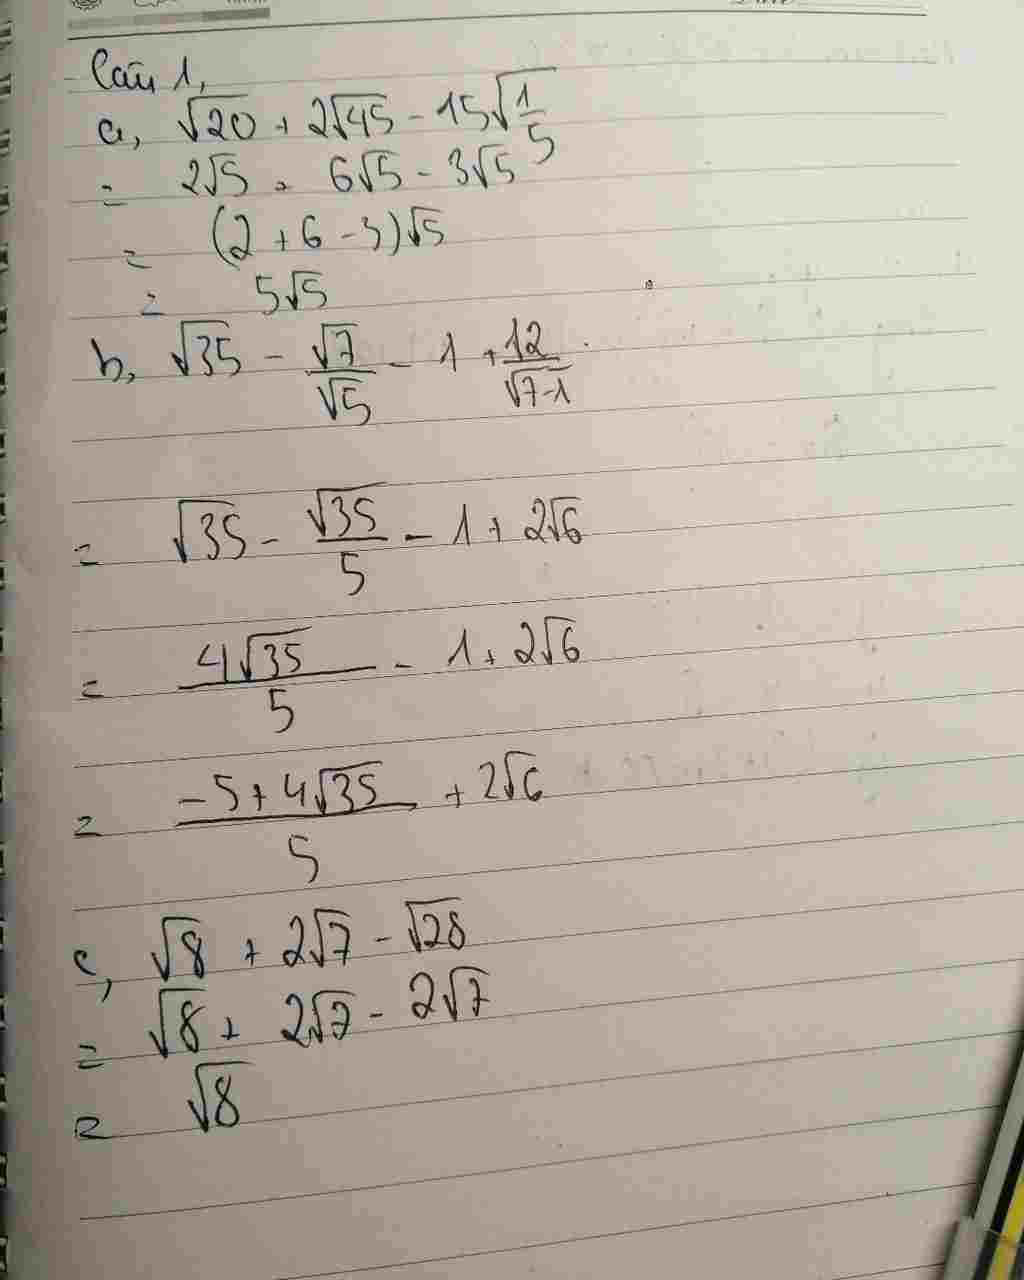 Câu 1,
a, √20 + 2√45 - 15√(1/5)
= 2√5 + 6√5 - 3√5
= (2 + 6 - 3)√5
= 5√5
b, √35 - √7/√5 - 1 + 12/√(7-1)
= √35 - √35/5 - 1 + 2√6
= 4√35/5 - 1 + 2√6
= (-5 + 4√35)/5 + 2√6
c, √8 + 2√7 - √28
= √8 + 2√7 - 2√7
= √8